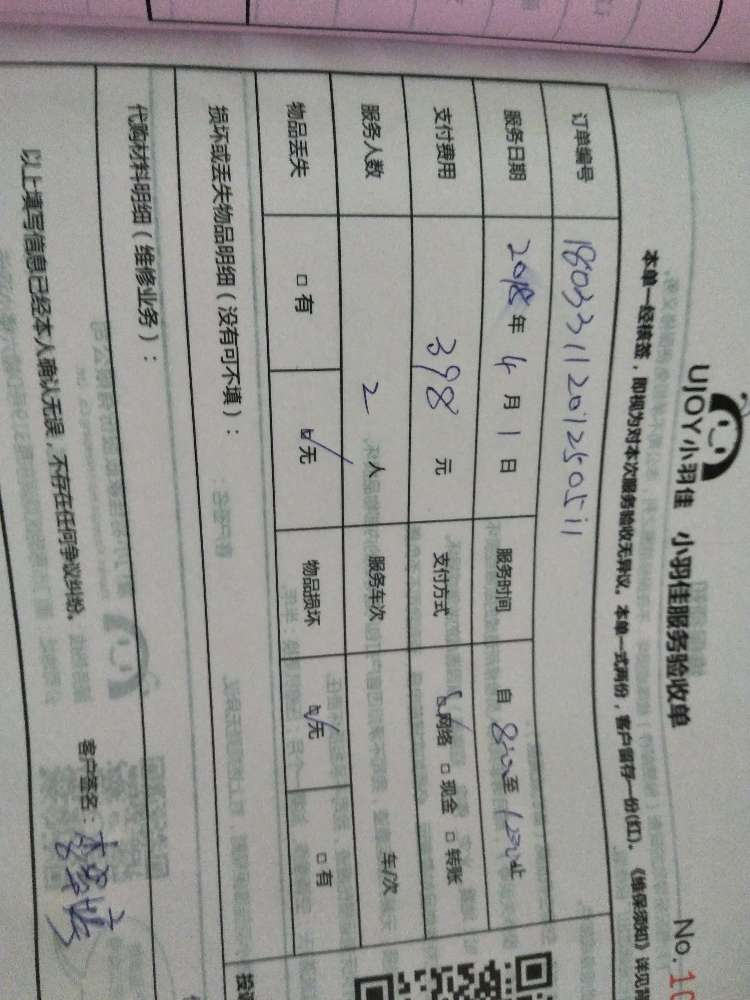 UJOY小羽佳 小羽佳服务验收单
No.10
本单一经核签，即视为对本次服务验收无异议。本单一式两份，客户留存一份(红)。《维保须知》详见背
订单编号 180331120725051
服务日期 2018年4月1日 服务时间 自8:00至12:00止
支付费用 398元 支付方式 ☑网络 □现金 □转账
服务人数 2人 服务车次 车/次
物品丢失 □有 ☑无 物品损坏 ☑无 □有
损坏或丢失物品明细（没有可不填）：
代购材料明细（维修业务）：
以上填写信息已经本人确认无误，不存在任何争议纠纷。
客户签名：
投诉